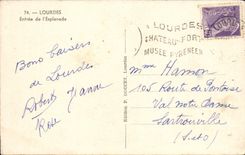 74. — LOURDES
Entrée de l'Esplanade
LOURDES
CHATEAU-FORT
MUSÉE PYRÉNÉEN
Bons baisers
de Lourdes
Robert Jeanne
Rose
Mme Hamon
105 Route de Pontoise
Val notre Dame
Sartrouville
(S-et-O)